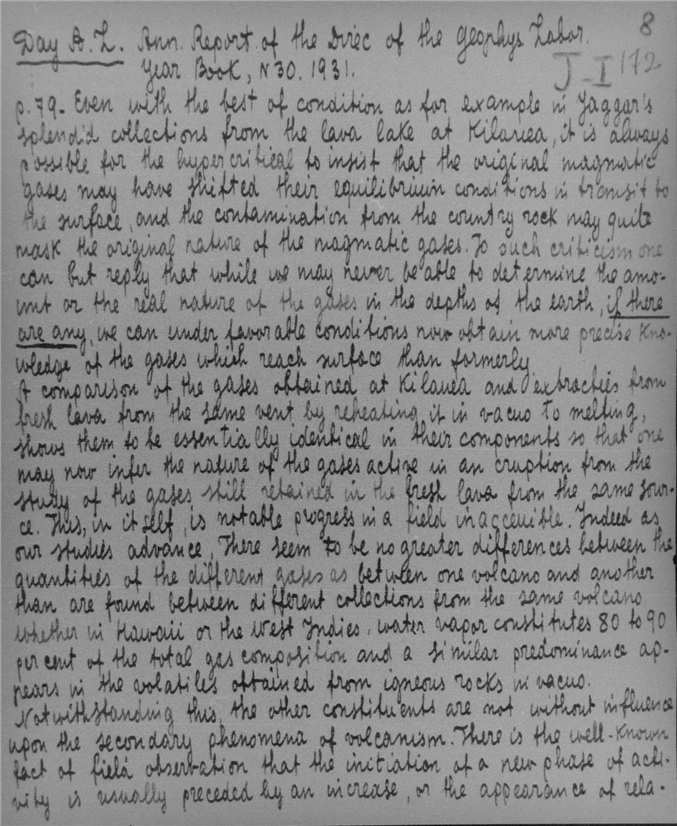 8
Day A. L. Ann. Report of the Direc of the Geophys Labor.
Year Book, N 30. 1931.
J-I 172
p. 79- Even with the best of condition as for example in Jaggar's
splendid collections from the lava lake at Kilauea, it is always
possible for the hypercritical to insist that the original magmatic
gases may have shifted their equilibrium conditions in transit to
the surface, and the contamination from the country rock may quite
mask the original nature of the magmatic gases. To such criticism one
can but reply that while we may never be able to determine the amo-
unt or the real nature of the gases in the depths of the earth, if there
are any, we can under favorable conditions now obtain more precise kno-
wledge of the gases which reach surface than formerly
A comparison of the gases obtained at Kilauea and extracties from
fresh lava from the same vent by reheating it in vacuo to melting,
shows them to be essentially identical in their components so that one
may now infer the nature of the gases active in an eruption from the
study of the gases still retained in the fresh lava from the same sour-
ce. This, in itself, is notable progress in a field inaccesible. Indeed as
our studies advance, There seem to be no greater differences between the
quantities of the different gases as between one volcano and another
than are found between different collections from the same volcano
whether in Hawaii or the West Indies. water vapor constitutes 80 to 90
per cent of the total gas composition and a similar predominance ap-
pears in the volatiles obtained from igneous rocks in vacuo.
Notwithstanding this, the other constituents are not without influence
upon the secondary phenomena of volcanism. There is the well-known
fact of field observation that the initiation of a new phase of acti-
vity is usually preceded by an increase, or the appearance of rela-